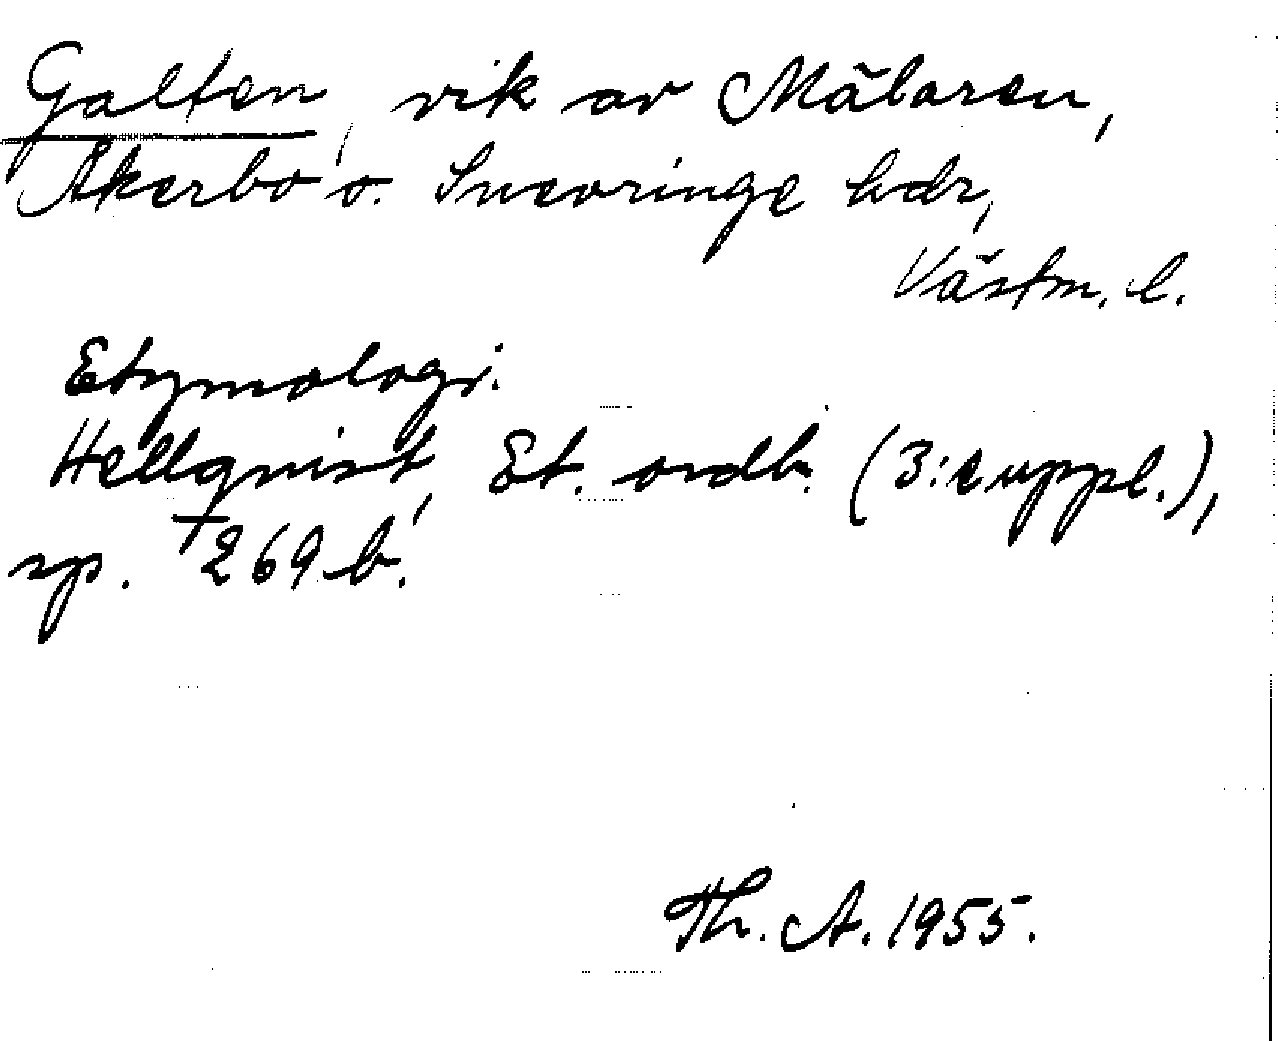 Galten, vik av Mälaren,
Åkerbo o. Snevringe hdr,
Västm. l.
Etymologi.
Hellqvist, Et. ordb. (3:e uppl.),
sp. 269 b.
Th. A. 1955.